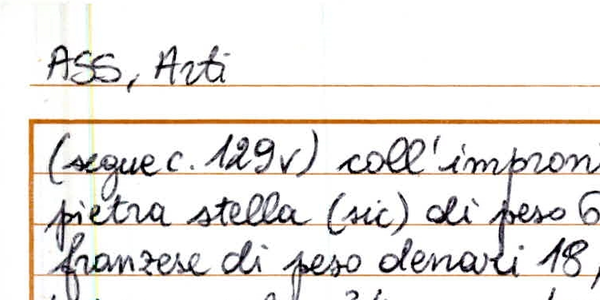 ASS, Arti
(segue c. 129v) coll'impron
pietra stella (sic) di peso 6
franzese di peso denari 18,